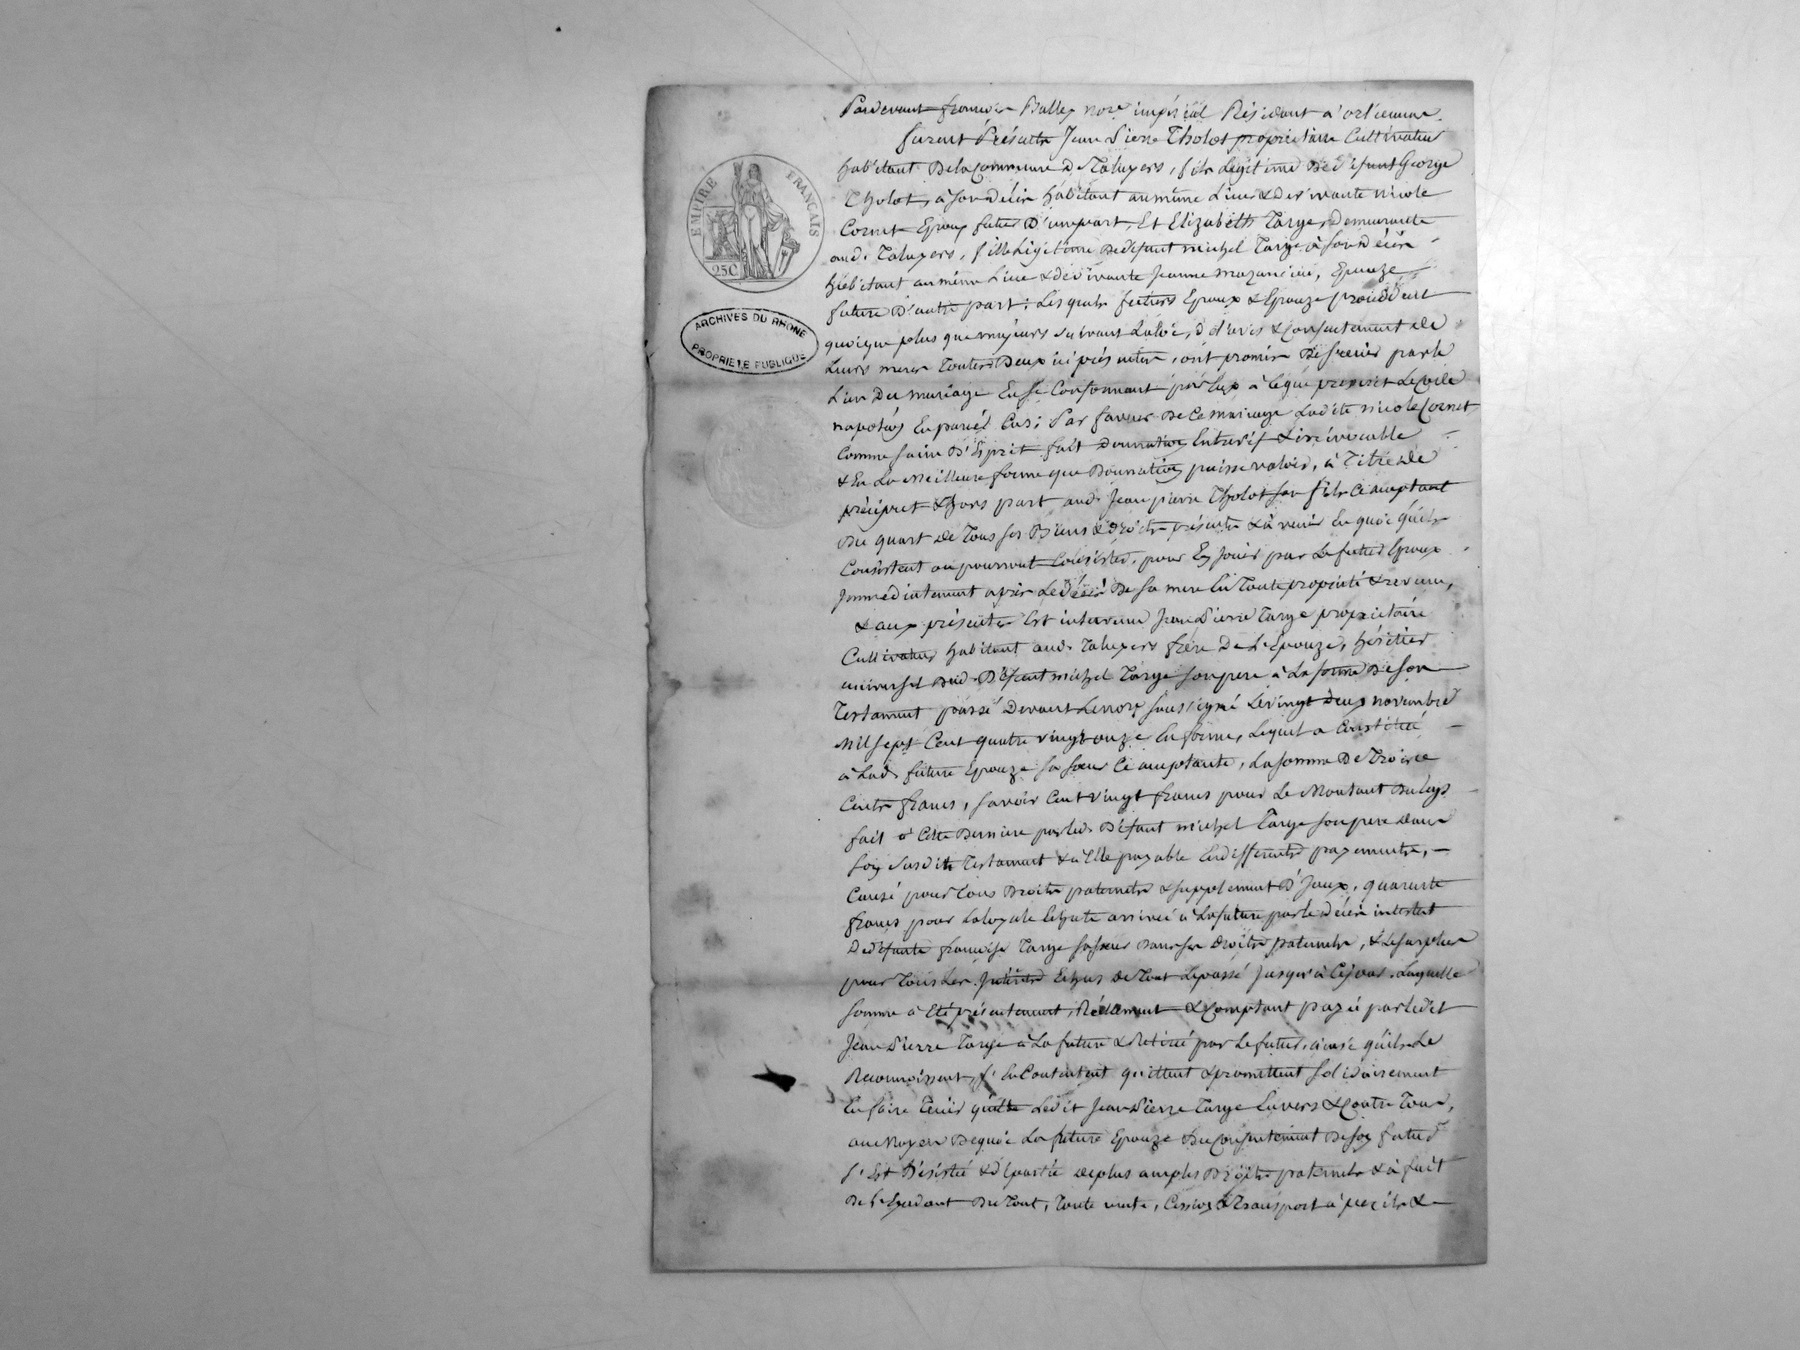 EMPIRE FRANÇAIS
25C
ARCHIVES DU RHONE
PROPRIETE PUBLIQUE
Pardevant françois Balley nore impérial Résidant à orlienner
furent Présents Jean Pierre Tholot propriétaire Cultivateur
habitant De la Commune De Taluyers, fils légitime De défunt George
Tholot, à son décès habitant au même Lieu & de vivante nicole
Cornet Epoux futur D'une part, Et Elizabeth Targe, Demeurante
aud. Taluyers, fille Légitime De défunt michel Targe à son décès
habitant au même Lieu & de vivante Jeanne mazancieu, Epouze
future D'autre part; Lesquels futurs Epoux & Epouze procédant
quoique plus que majeurs suivant La loi, d'avis & Consentement de
Leurs meres Toutes Deux ici présentes, ont promis De s'unir par le
Lien Du mariage En se Conformant par Eux à ce que prescrit Le Code
napoléon En pareil Cas; Par faveur De Ce mariage Ladite nicole Cornet
Comme saine D'Esprit fait Donnation Entrevif & irrévocable
& En La Meilleure forme que Donnation puisse valoir, à Titre de
préciput & hors part aud. Jean pierre Tholot son fils Ce acceptant
Du quart de Tous ses Biens & Droits présents & à venir En quoi qu'ils
Consistent ou pourront Consister, pour En Jouir par Le futur Epoux
Immédiatement après Le Décès De sa mere En Toute propriété & revenu,
& aux présentes Est intervenu Jean Pierre Targe propriétaire
Cultivateur habitant aud. Taluyers frère De L'Epouze, héritier
universel Dud. Défunt michel Targe son pere à La forme De son
Testament passé Devant Le nore soussigné Le vingt deux novembre
Mil sept Cent quatre vingt onze En forme, Lequel a Constitué
à Lad. future Epouze sa sœur Ce acceptante, La somme De Trois
Cents francs, savoir Cent vingt francs pour Le Montant Du Legs
fait à Cette Derniere par led. Défunt michel Targe son pere dans
son susdit Testament & à Elle payable En différents payements,
Causé pour Tous Droits paternels & supplement D'Iceux, quarante
francs pour La loyale Echute arrivée à La future par le décès intestat
De défunte françoise Targe sa sœur Dans ses Droits paternels, & Le surplus
pour Tous Les Intérêts Echus De Tout Le passé Jusqu'à Ce jour. Laquelle
somme a Eté présentement, Réellement & Comptant payée par Ledit
Jean Pierre Targe à La future & Retirée par Le futur, ainsi qu'ils Le
Reconnoissent, s'En Contentent quittent & promettent solidairement
En faire Tenir quitte Ledit Jean Pierre Targe Envers & Contre Tous,
au Moyen De quoi La future Epouze Du Consentement De son futur
s'Est Désistée & départie de plus amples Droits paternels & a fait
De L'Excédant Du Tout, Toute vente, Cession & Transport à périls &